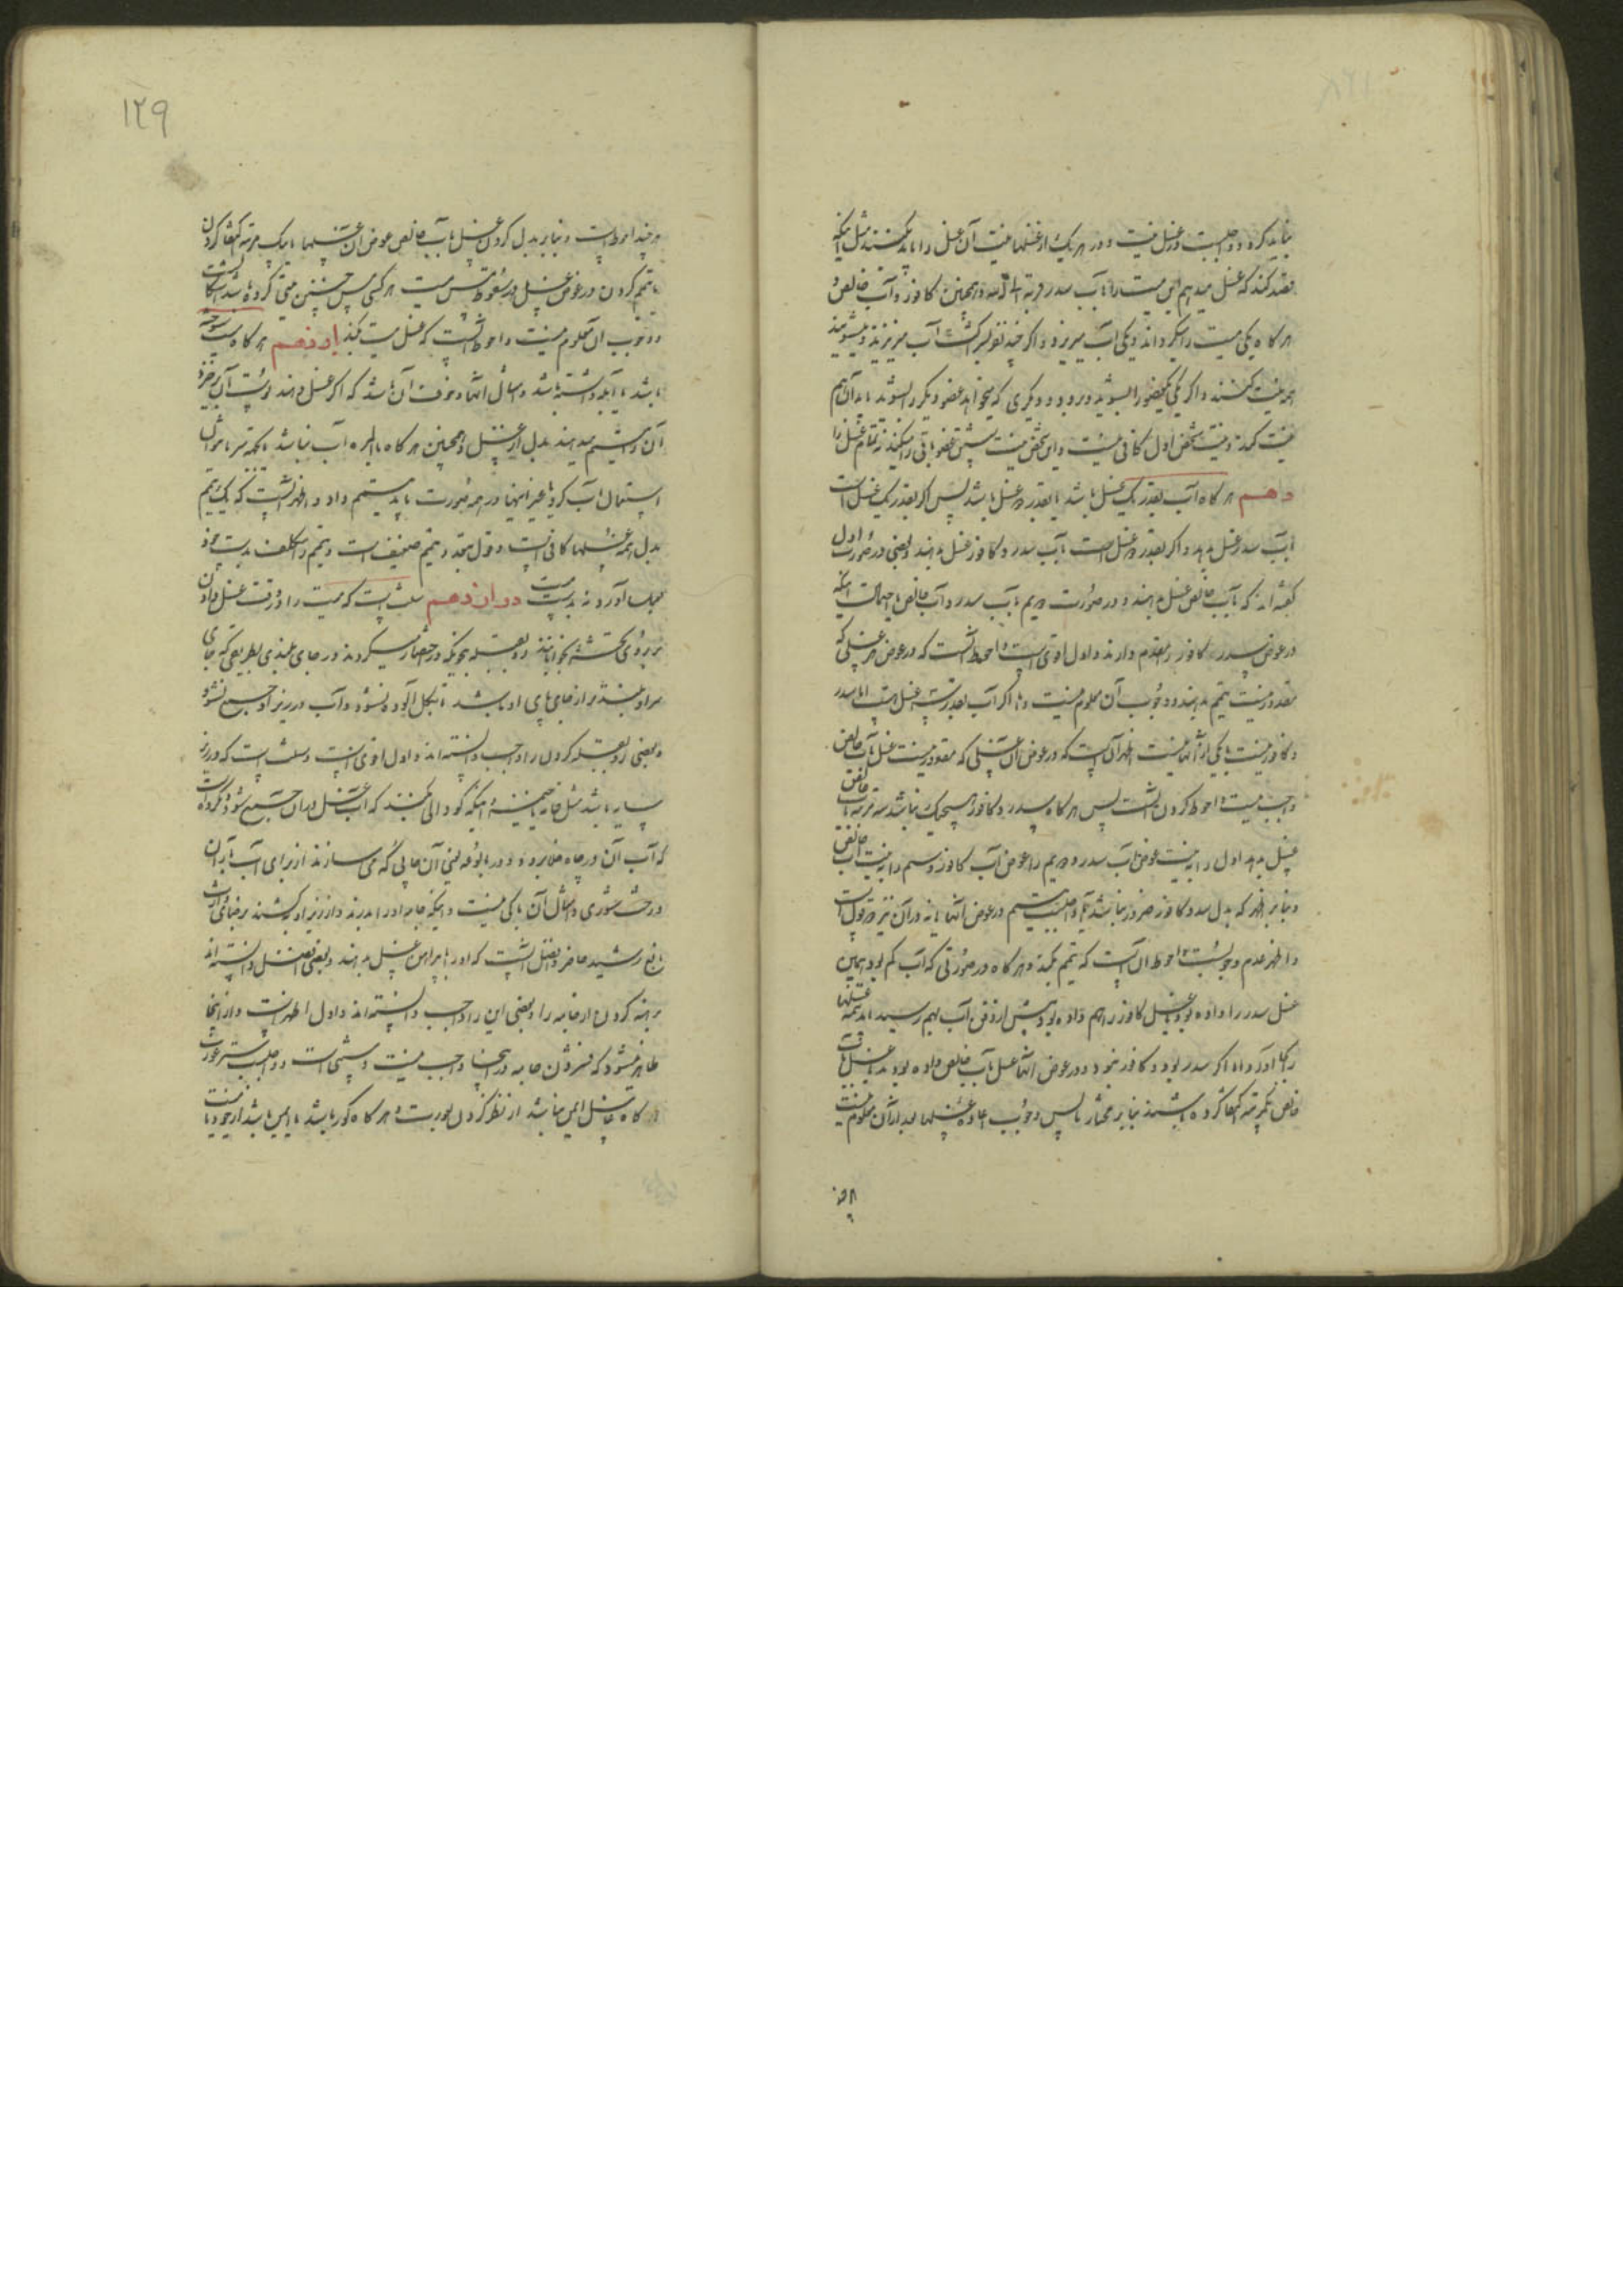 نباید کرد و واجبست در غسل نیت و در هر یک از غسلها نیت آن غسل را باید بکنند مثل اینکه
قصد کند که غسل میدهم این میت را بآب سدر قربة الی الله و همچنین کافور و آب خالص و
هر گاه یکی میت را میگرداند و یکی آب میریزد و اگر چند نفر بشرکت آب میریزند و میشویند
همه نیت کنند و اگر یکی یکعضو را بشوید و برود و دیگری که میخواهد عضو دیگر را بشوید باید آن هم
نیت کند و نیت شخص اول کافی نیست و این شخص نیت شستن عضو باقی را میکند نه تمام غسل را
دهم هر گاه آب بقدر یک غسل باشد یا بقدر دو غسل باشد پس اگر بقدر یک غسل است
بآب سدر غسل بدهد و اگر بقدر دو غسل است بآب سدر و کافور غسل بدهند و بعضی در صورت اول
گفته‌اند که بآب خالص غسل بدهند و در صورت دویم بآب سدر و آب خالص باحتمال اینکه
در عوض سدر کافور را مقدم دارند و اول اقوی است و احوط آنست که در عوض هر غسلی که
مقدور نیست تیمم بدهند و وجوب آن معلوم نیست و اما اگر آب بقدر سه غسل هست اما سدر
و کافور نیست یا یکی از آنها نیست اظهر آن است که در عوض آن غسلی که مقدور نیست غسل بآب خالص
واجب نیست و احوط کردن آنست پس هر گاه سدر و کافور هیچیک نباشد سه مرتبه بآب خالص
غسل بدهد اول را به نیت عوض آب سدر و دویم را عوض آب کافور و سیم را به نیت آب خالص
و بنابر اظهر که بدل سدر و کافور ضرور نباشد آیا واجبست تیمم در عوض آنها یا نه در آن نیز دو قول است
و اظهر عدم وجوبست و احوط آن است که تیمم بکند و هر گاه در صورتی که آب کم بود همین
غسل سدر را داده بود یا غسل کافور را هم داده بود و پیش از دفن آب بهم رسید باید تتمه غسلها
را بجا آورد و اما اگر سدر نبود و کافور نبود و در عوض آنها غسل بآب خالص داده بودند یا غسل بآب
خالص یکمرتبه اکتفا کرده باشند بنابر مختار ما پس وجوب اعاده غسلها بعد از آن معلوم نیست
۱۲۹
هر چند احوط است و بنابر بدل کردن غسل بآب خالص عوض آن غسلها یا بیک مرتبه اکتفا کردن
یا تیمم کردن در عوض غسل در سقوط مس میت هر گاه کسی مس چنین میتی کرده باشد اشکالست
و وجوب آن معلوم نیست و احوط آنست که غسل مس میت بکند یازدهم هر گاه میت سوخته
باشد یا آبله داشته باشد و امثال آنها و خوف آن باشد که اگر غسل دهند پوست آن بریزد
آن را تیمم میدهند بدل از غسل و همچنین هر گاه بالمره آب نباشد یا ممکن نباشد
استعمال آب کردن یا غیر اینها در همه صورت باید تیمم داد و اظهر آنست که یک تیمم
بدل همه غسلها کافی است و قول بتعدد تیمم ضعیف است و تیمم را مکلف بدست خود
بجا آورد نه بدست میت دوازدهم سنت است که میت را در وقت غسل دادن
بر روی تخته بخوابانند رو بقبله بنحویکه در احتضار میکردند و در جای بلندی بطریقی که جای
سر او بلندتر از جای پای او باشد تا بگل آلوده نشود و آب در زیر او جمع نشود
و بعضی رو بقبله کردن را واجب دانسته‌اند و اول اقوی است و سنت است که در زیر
سایه باشد مثل خانه یا خیمه و اینکه گودالی بکنند که آب غسل در آن جمع شود و مکروه است
که آب آن در چاه خلا برود و در بالوعه یعنی آن چاهی که می سازند از برای آب باران
و رخت شوری و امثال آن باکی نیست و اینکه جامه او را بدرند و از زیر او بکشند برضای وارث
بالغ رشید حاضر و افضل آنست که او را با پیراهن غسل بدهند و بعضی افضل دانسته‌اند
برهنه کردن از جامه را و بعضی این را واجب دانسته‌اند و اول اظهر است و از اینجا
ظاهر میشود که فشردن جامه در اینجا واجب نیست و سنتی است و واجبست ستر عورت
هر گاه غاسل ایمن نباشد از نظر کردن بعورت و هر گاه کور باشد یا ایمن باشد از خود یا